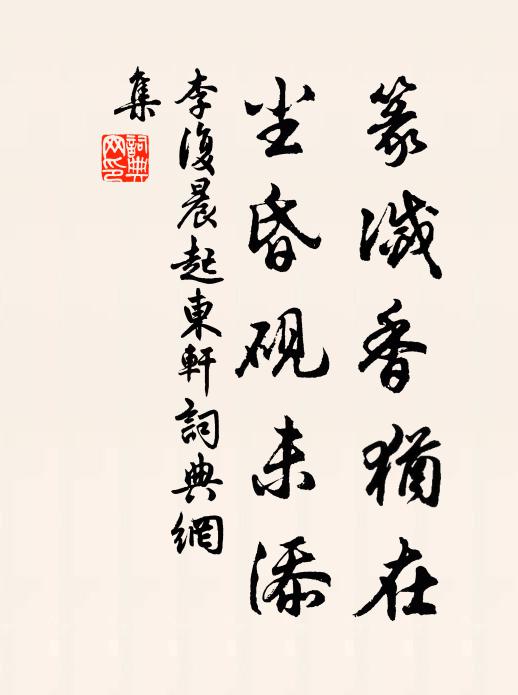 篆滅香猶在
尘昏硯未添
李復晨起東軒詞典網
集
詞典
网印